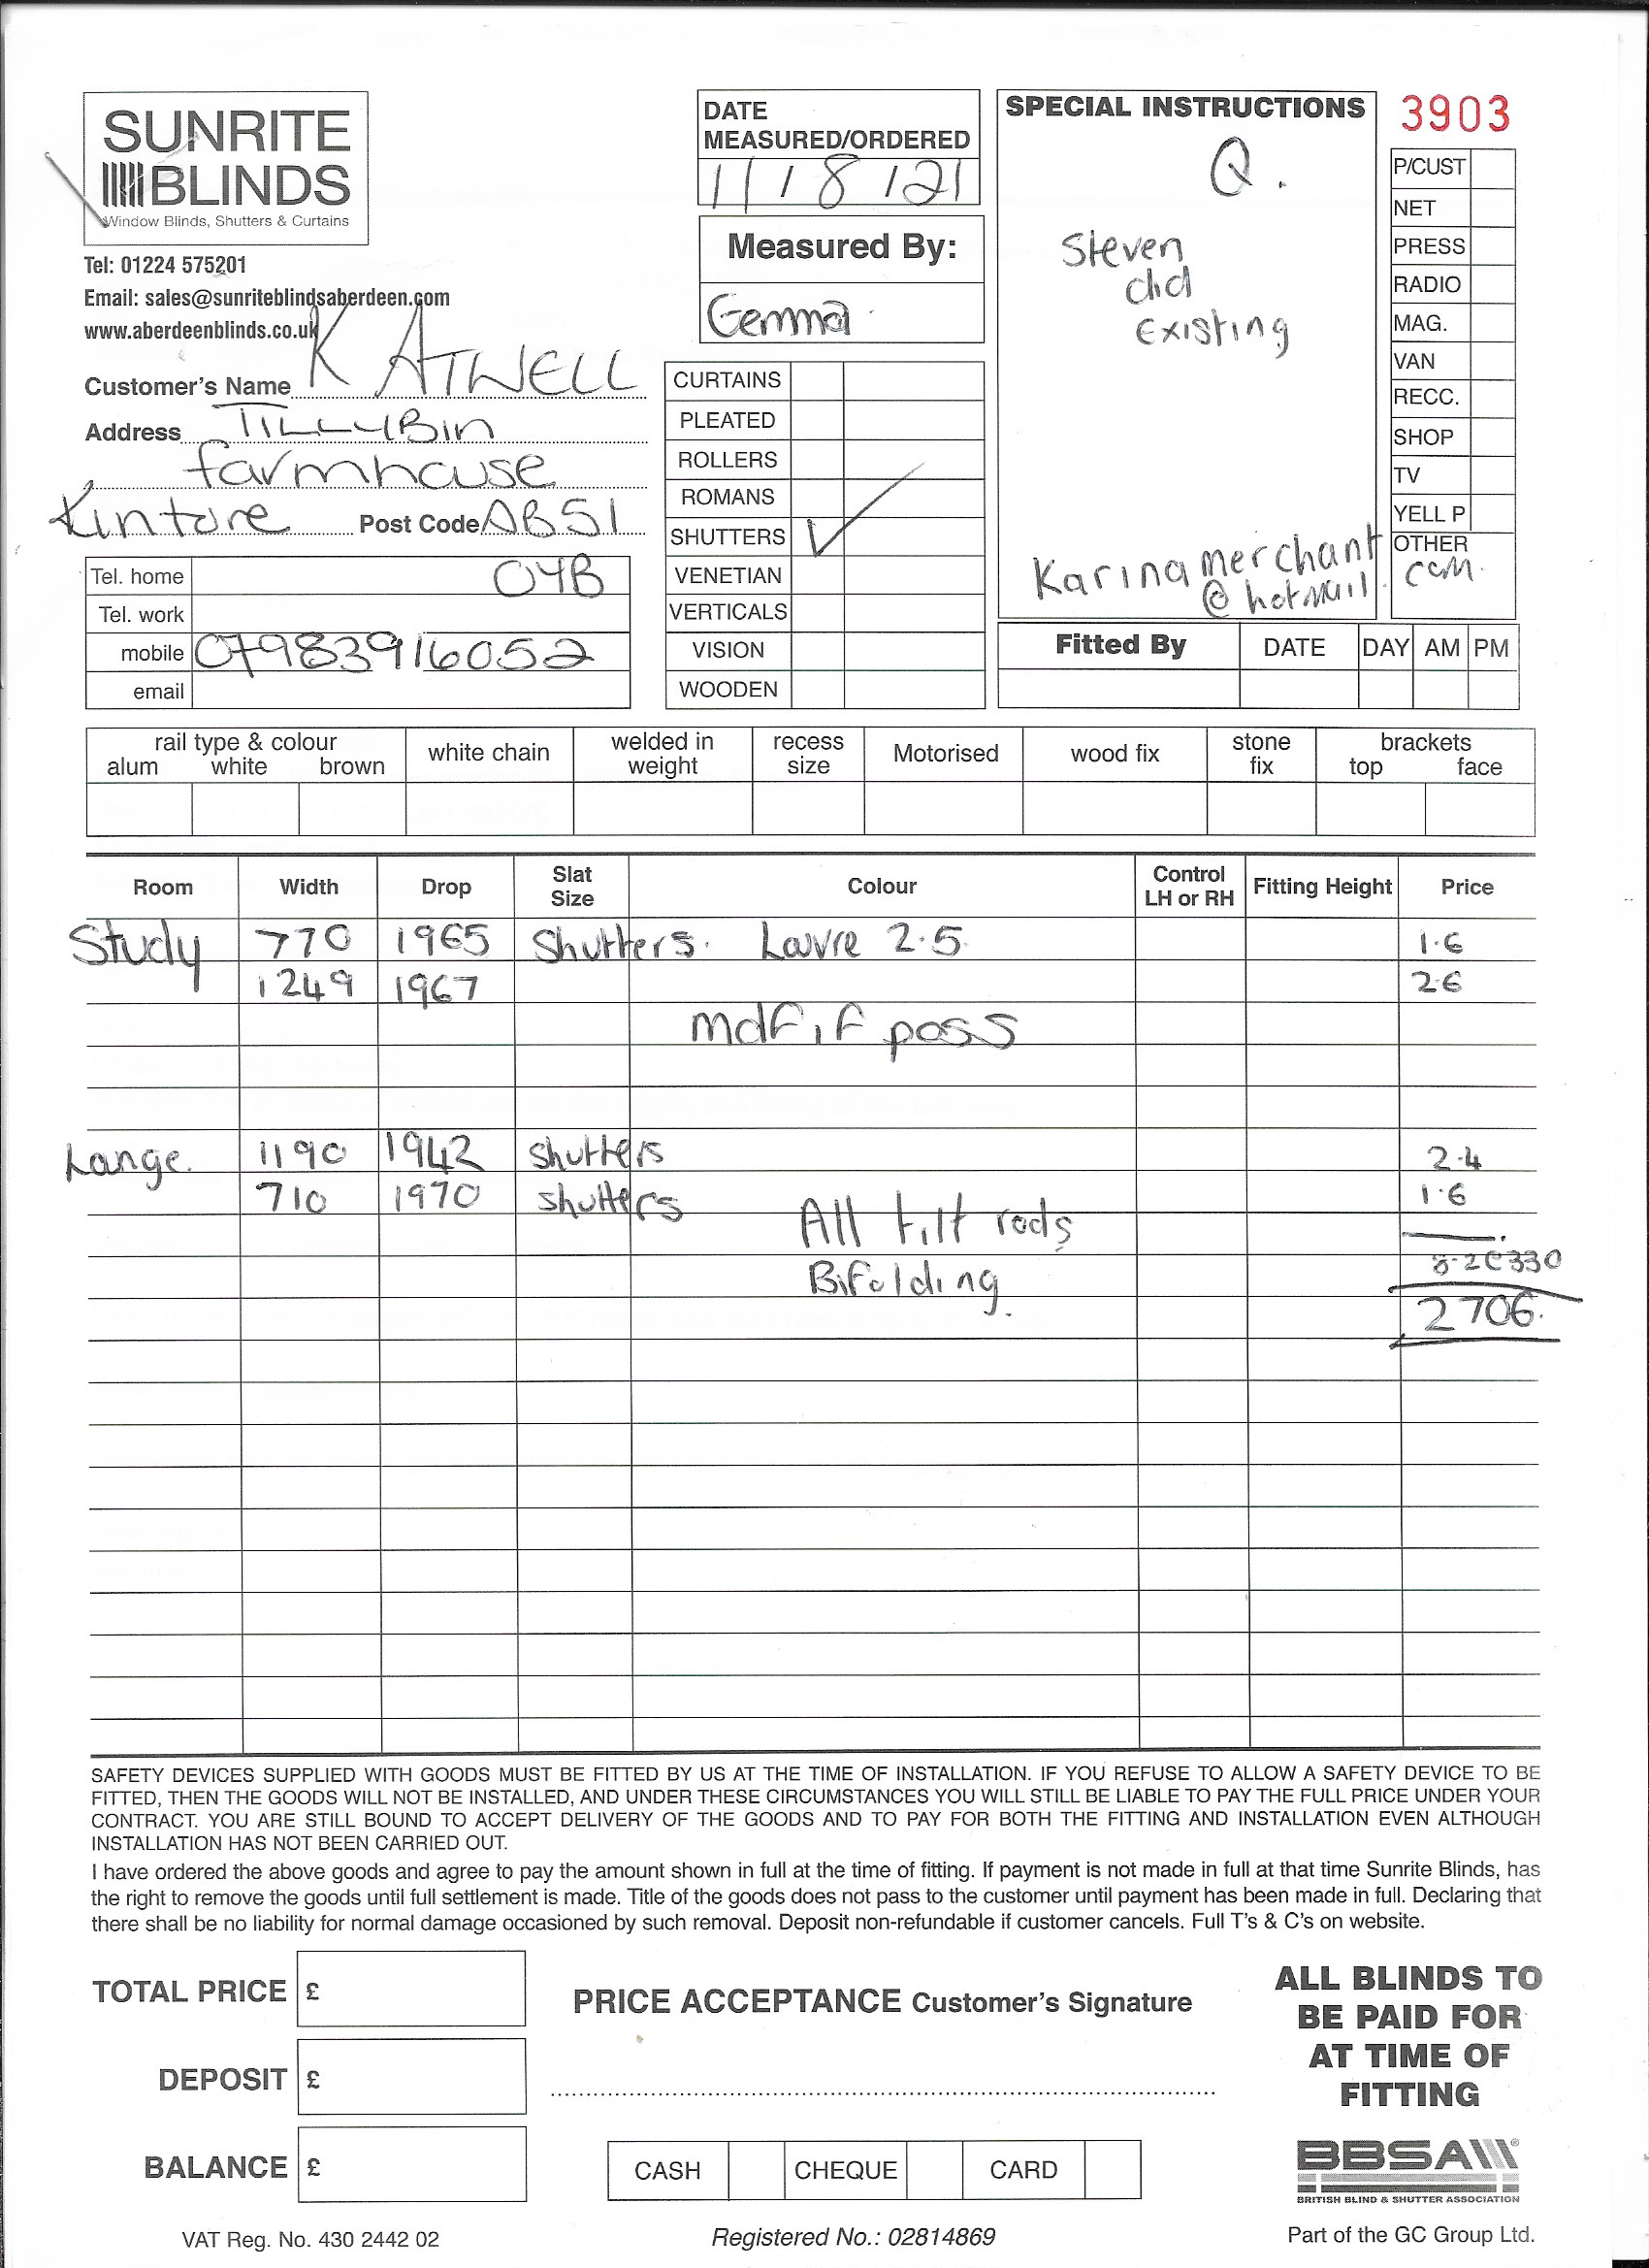 SUNRITE
BLINDS
Window Blinds, Shutters & Curtains
Tel: 01224 575201
Email: sales@sunriteblindsaberdeen.com
www.aberdeenblinds.co.uk
Customer's Name K ATWELL
Address TILLYBIN
farmhouse
Kintore Post Code AB51
Tel. home 0YB
Tel. work
mobile 07983916052
email
DATE
MEASURED/ORDERED
11/8/21
Measured By:
Gemma
CURTAINS
PLEATED
ROLLERS
ROMANS
SHUTTERS ✓
VENETIAN
VERTICALS
VISION
WOODEN
SPECIAL INSTRUCTIONS
Q.
Steven
did
Existing
Karinamerchant
@hotmail.com
3903
P/CUST
NET
PRESS
RADIO
MAG.
VAN
RECC.
SHOP
TV
YELL P
OTHER
Fitted By DATE DAY AM PM
rail type & colour
alum white brown
white chain
welded in
weight
recess
size
Motorised
wood fix
stone
fix
brackets
top face
Room Width Drop Slat Size Colour Control LH or RH Fitting Height Price
Study 770 1965 Shutters. Louvre 2.5 1.6
1249 1967 2.6
mdf if poss
Lounge. 1190 1942 shutters 2.4
710 1970 shutters 1.6
All tilt rods
8.2@330
Bifolding.
2706.
SAFETY DEVICES SUPPLIED WITH GOODS MUST BE FITTED BY US AT THE TIME OF INSTALLATION. IF YOU REFUSE TO ALLOW A SAFETY DEVICE TO BE
FITTED, THEN THE GOODS WILL NOT BE INSTALLED, AND UNDER THESE CIRCUMSTANCES YOU WILL STILL BE LIABLE TO PAY THE FULL PRICE UNDER YOUR
CONTRACT. YOU ARE STILL BOUND TO ACCEPT DELIVERY OF THE GOODS AND TO PAY FOR BOTH THE FITTING AND INSTALLATION EVEN ALTHOUGH
INSTALLATION HAS NOT BEEN CARRIED OUT.
I have ordered the above goods and agree to pay the amount shown in full at the time of fitting. If payment is not made in full at that time Sunrite Blinds, has
the right to remove the goods until full settlement is made. Title of the goods does not pass to the customer until payment has been made in full. Declaring that
there shall be no liability for normal damage occasioned by such removal. Deposit non-refundable if customer cancels. Full T's & C's on website.
TOTAL PRICE £
DEPOSIT £
BALANCE £
PRICE ACCEPTANCE Customer's Signature
CASH CHEQUE CARD
ALL BLINDS TO
BE PAID FOR
AT TIME OF
FITTING
BBSA
BRITISH BLIND & SHUTTER ASSOCIATION
VAT Reg. No. 430 2442 02
Registered No.: 02814869
Part of the GC Group Ltd.